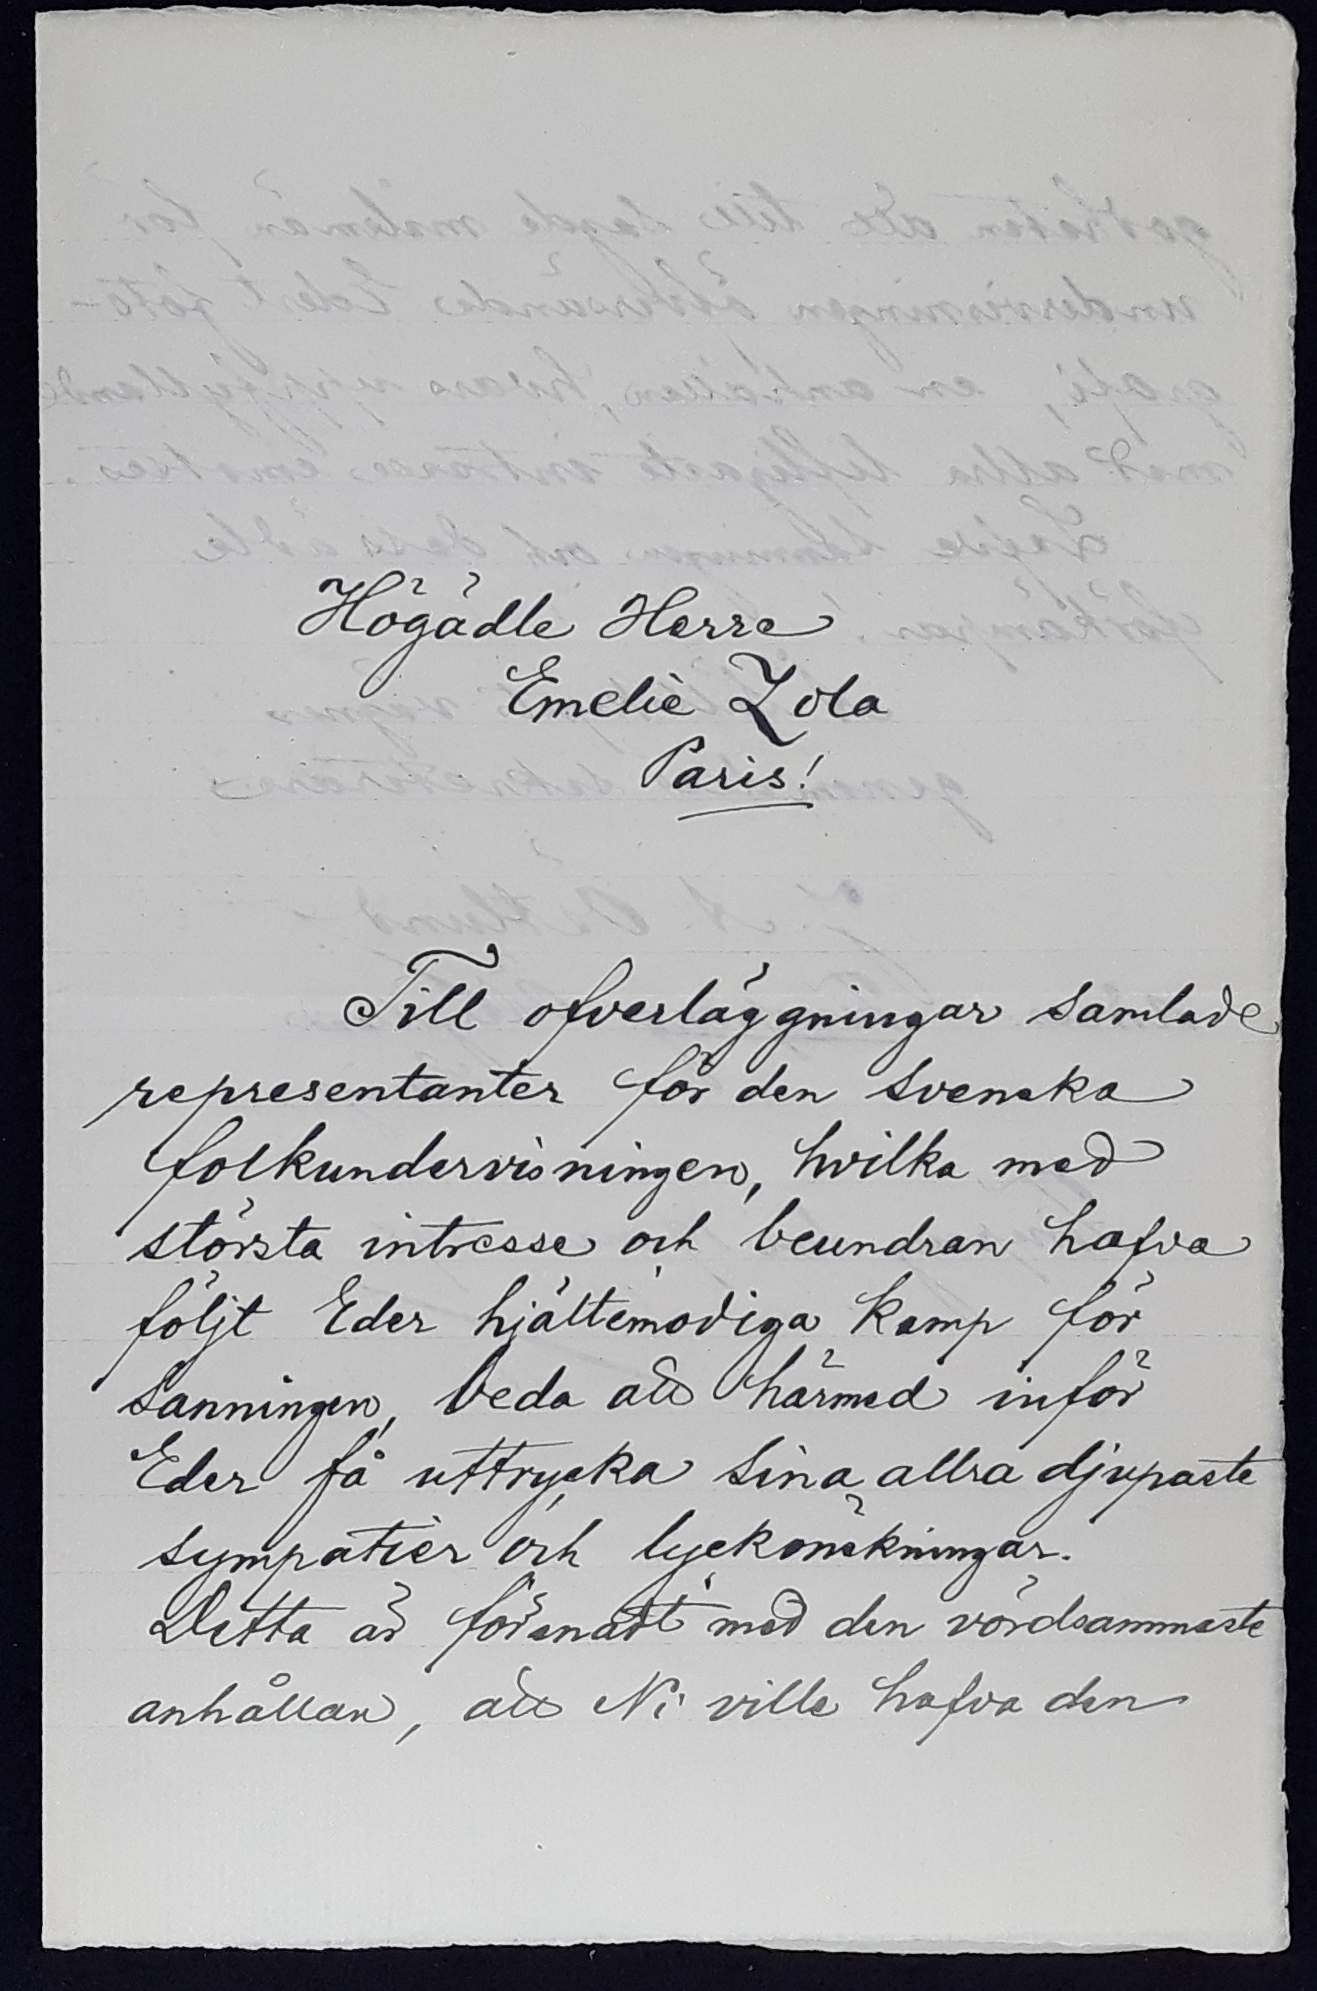 Högädle Herre
Emelie Zola
Paris!
Till öfverläggningar samlade
representanter för den svenska
folkundervisningen, hvilka med
största intresse och beundran hafva
följt Eder hjältemodiga kamp för
sanningen, beda att härmed inför
Eder få uttrycka sina allra djupaste
sympatier och lyckönskningar.
Detta är förenadt med den vördsammaste
anhållan, att Ni ville hafva den